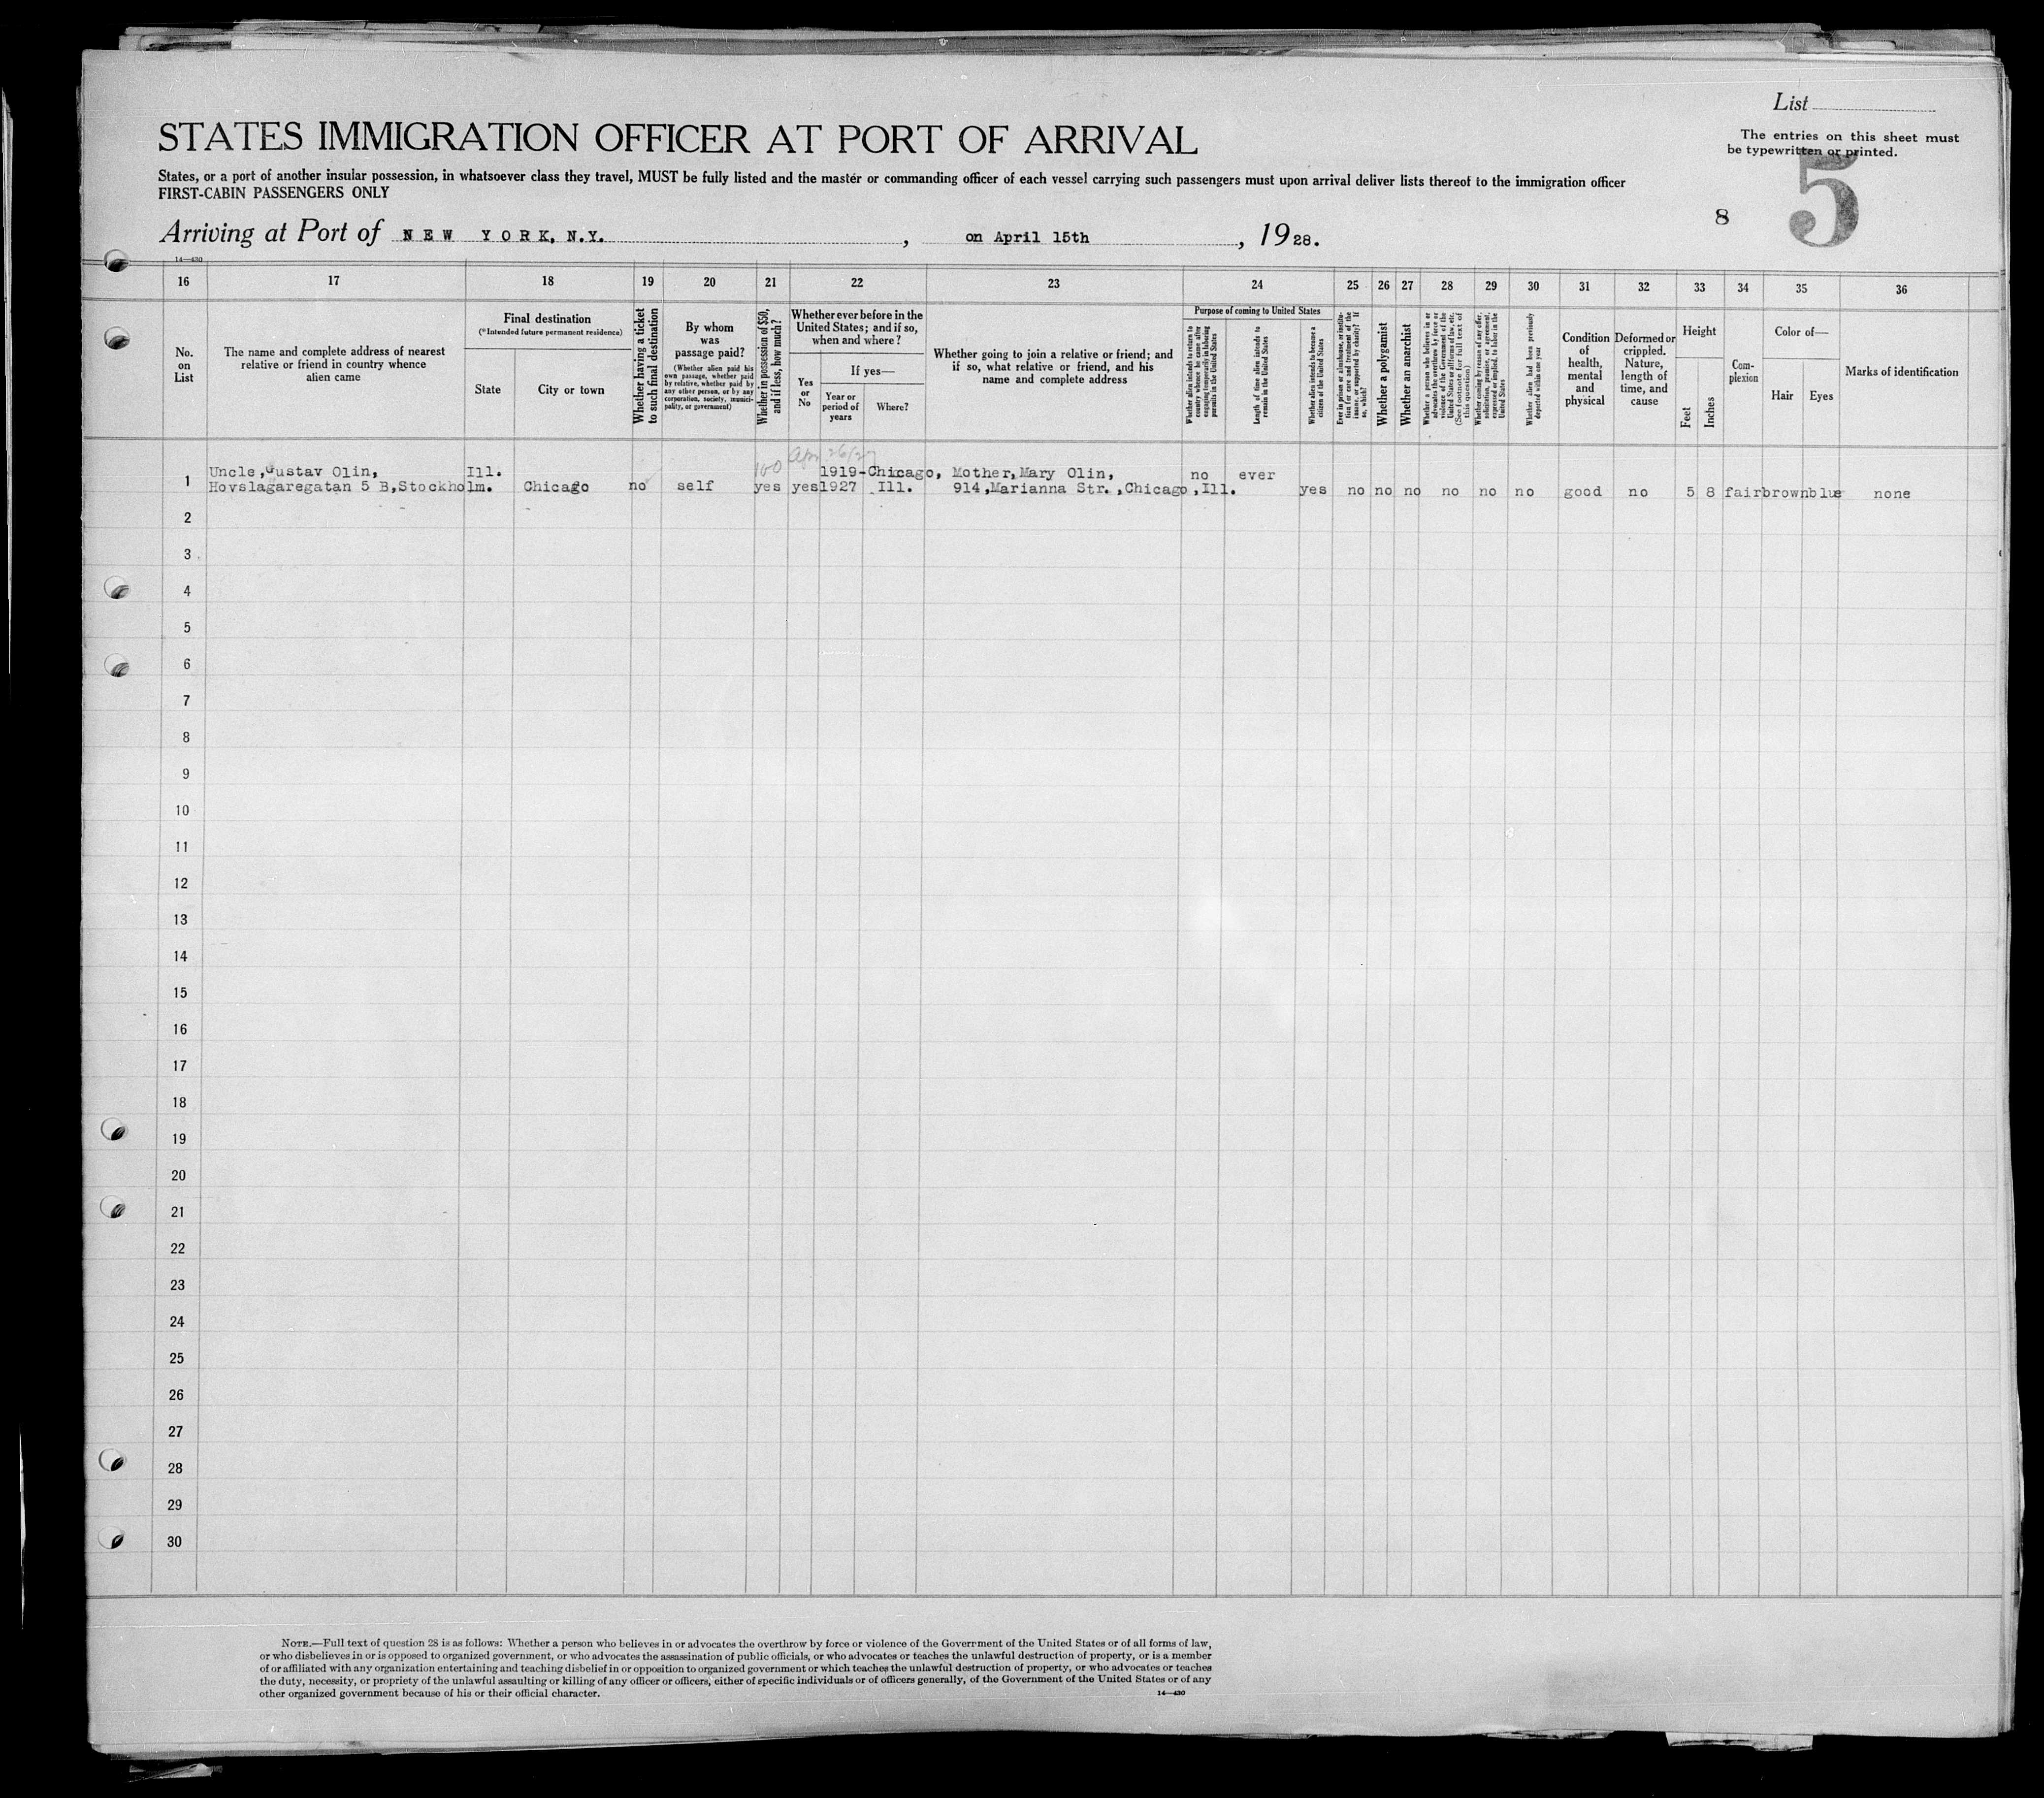 List
The entries on this sheet must
be typewritten or printed.
5
8
STATES IMMIGRATION OFFICER AT PORT OF ARRIVAL
States, or a port of another insular possession, in whatsoever class they travel, MUST be fully listed and the master or commanding officer of each vessel carrying such passengers must upon arrival deliver lists thereof to the immigration officer
FIRST-CABIN PASSENGERS ONLY
Arriving at Port of NEW YORK, N.Y., on April 15th, 1928.
14—430
16 17 18 19 20 21 22 23 24 25 26 27 28 29 30 31 32 33 34 35 36
No.
on
List
The name and complete address of nearest
relative or friend in country whence
alien came
Final destination
(*Intended future permanent residence)
State
City or town
Whether having a ticket
to such final destination
By whom
was
passage paid?
(Whether alien paid his
own passage, whether paid
by relative, whether paid by
any other person, or by any
corporation, society, munici-
pality, or government)
Whether in possession of $50,
and if less, how much?
Whether ever before in the
United States; and if so,
when and where?
Yes
or
No
If yes—
Year or
period of
years
Where?
Whether going to join a relative or friend; and
if so, what relative or friend, and his
name and complete address
Purpose of coming to United States
Whether alien intends to return to
country whence he came after
engaging temporarily in laboring
pursuits in the United States
Length of time alien intends to
remain in the United States
Whether alien intends to become a
citizen of the United States
Ever in prison or almshouse, or institu-
tion for care and treatment of the
insane, or supported by charity? If
so, which?
Whether a polygamist
Whether an anarchist
Whether a person who believes in or
advocates the overthrow by force or
violence of the Government of the
United States or all forms of law, etc.
(See footnote for full text of
this question)
Whether coming by reason of any offer,
solicitation, promise, or agreement,
expressed or implied, to labor in the
United States
Whether alien had been previously
deported within one year
Condition
of
health,
mental
and
physical
Deformed or
crippled.
Nature,
length of
time, and
cause
Height
Feet
Inches
Com-
plexion
Color of—
Hair
Eyes
Marks of identification
100 Apr 26/27
Uncle, Gustav Olin, Ill. 1919-Chicago, Mother, Mary Olin, no ever
1 Hovslagaregatan 5 B, Stockholm. Chicago no self yes yes 1927 Ill. 914, Marianna Str., Chicago, Ill. yes no no no no no no good no 5 8 fair brown blue none
2
3
4
5
6
7
8
9
10
11
12
13
14
15
16
17
18
19
20
21
22
23
24
25
26
27
28
29
30
NOTE.—Full text of question 28 is as follows: Whether a person who believes in or advocates the overthrow by force or violence of the Government of the United States or of all forms of law,
or who disbelieves in or is opposed to organized government, or who advocates the assassination of public officials, or who advocates or teaches the unlawful destruction of property, or is a member
of or affiliated with any organization entertaining and teaching disbelief in or opposition to organized government or which teaches the unlawful destruction of property, or who advocates or teaches
the duty, necessity, or propriety of the unlawful assaulting or killing of any officer or officers, either of specific individuals or of officers generally, of the Government of the United States or of any
other organized government because of his or their official character.
14—430